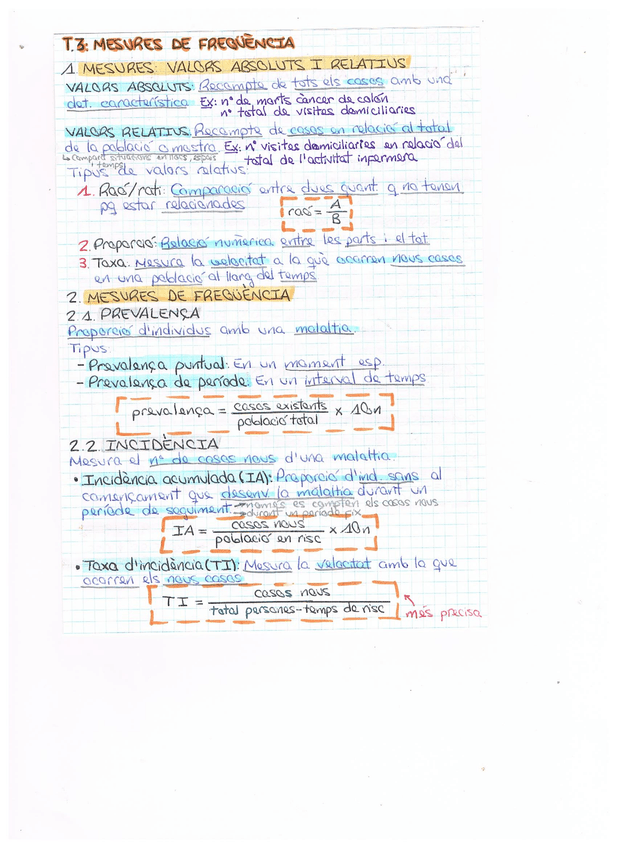 T.3: MESURES DE FREQÜÈNCIA
1. MESURES: VALORS ABSOLUTS I RELATIUS
VALORS ABSOLUTS: Recompte de tots els casos amb una
det. característica Ex: nº de morts càncer de colón
nº total de visites domiciliaries
VALORS RELATIUS: Recompte de casos en relació al total
de la població o mostra. Ex: nº visites domiciliaries en relació del
total de l'activitat infermera
↳ Compara situations en llocs, espais
i temps
Tipus de valors relatius:
1. Raó/rati: Comparació entre dues quant. q no tenen
pq estar relacionades
raó = A / B
2. Proporció: Relació numèrica entre les parts i el tot
3. Taxa: Mesura la velocitat a la què ocorren nous casos
en una població al llarg del temps
2. MESURES DE FREQÜÈNCIA
2.1. PREVALENÇA
Proporció d'individus amb una malaltia.
Tipus
- Prevalença puntual: En un moment esp.
- Prevalença de període: En un interval de temps
prevalença = casos existents / població total × 10n
2.2. INCIDÈNCIA
Mesura el nº de casos nous d'una malaltia.
• Incidència acumulada (IA): Proporció d'ind. sans al
començament que desenv. la malaltia durant un
període de seguiment → només es compten els casos nous
→ durant un període fix
IA = casos nous / població en risc × 10n
• Taxa d'incidència (TI): Mesura la velocitat amb la que
ocorren els nous casos
TI = casos nous / total persones-temps de risc
més precisa